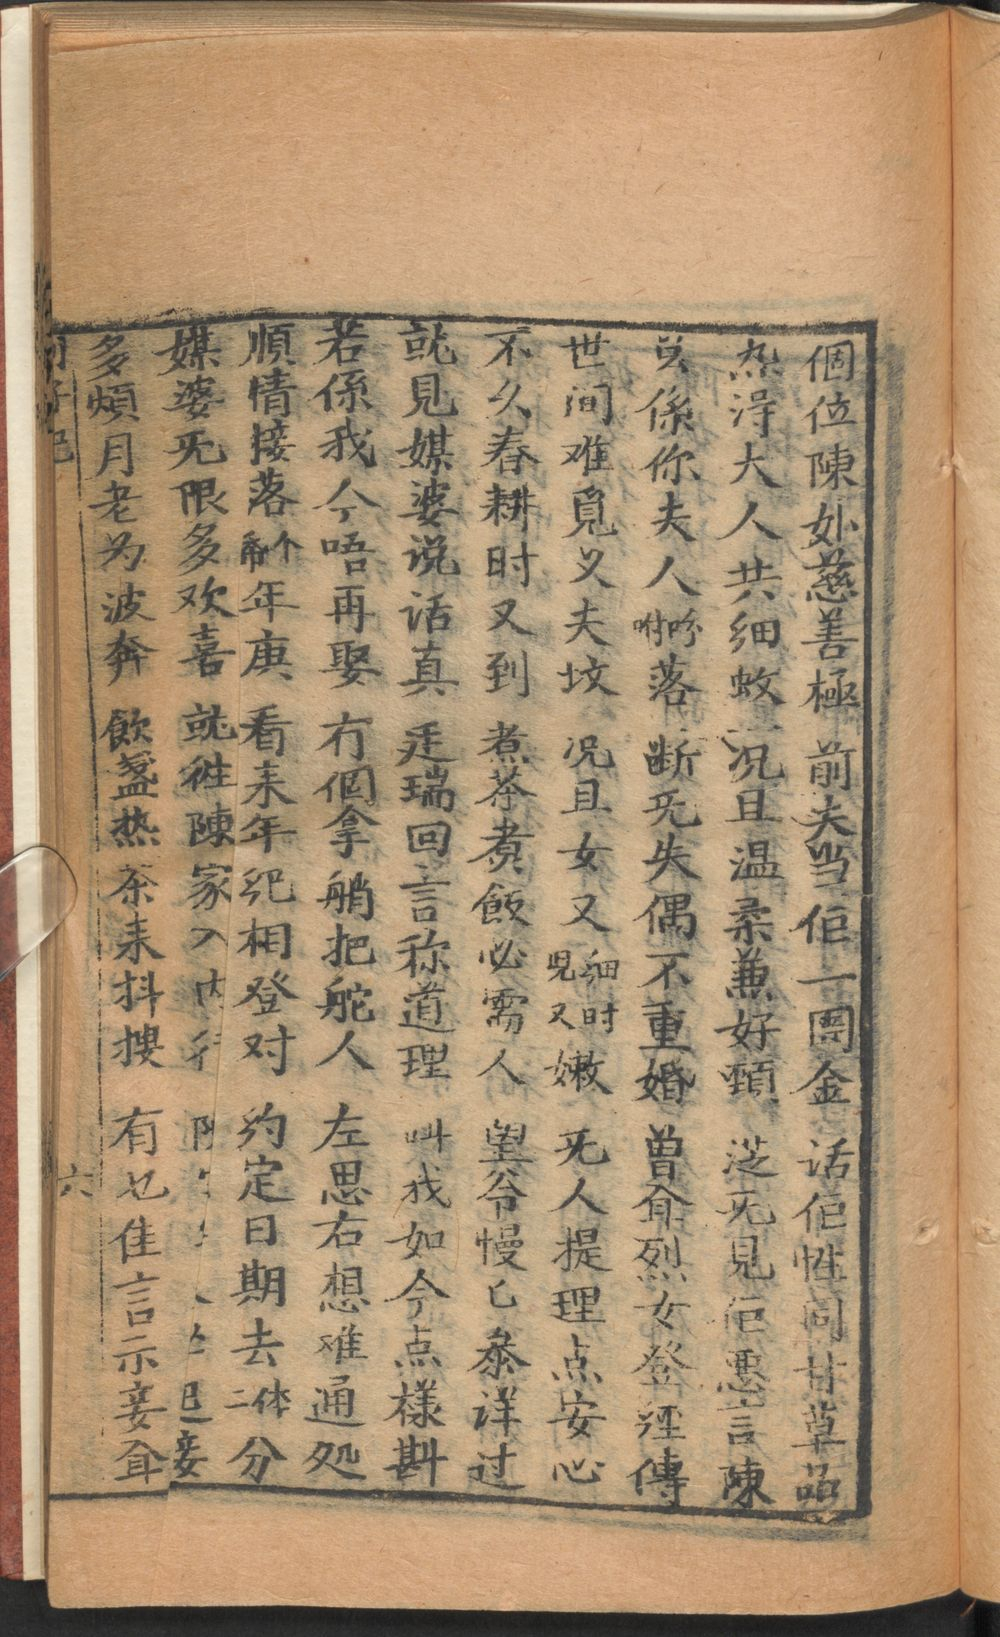 個位陳妳慈善極 前夫当佢一團金 话佢性同甘草
热淂大人共细蚊 况且温柔兼好頸 从无見佢悪言陳
兑係你夫人吩咐落 断无失偶不重婚 曽聞烈女登经傳
世间难覓义夫坟 况且女又细時兒又嫩 无人提理点安心
不久春耕时又到 煮茶煮飯必需人 望爷慢乚参详过
就見媒婆说话真 廷瑞回言称道理 叫我如今点樣斟
若係我今唔再娶 冇個拿艄把舵人 左思右想难通処
順情接落个年庚 看来年纪相登对 约定日期去二体分
媒婆无限多欢喜 就往陳家入内行 妾
多煩月老为波奔 飲盞热茶来抖搜 有乜佳言示妾
六